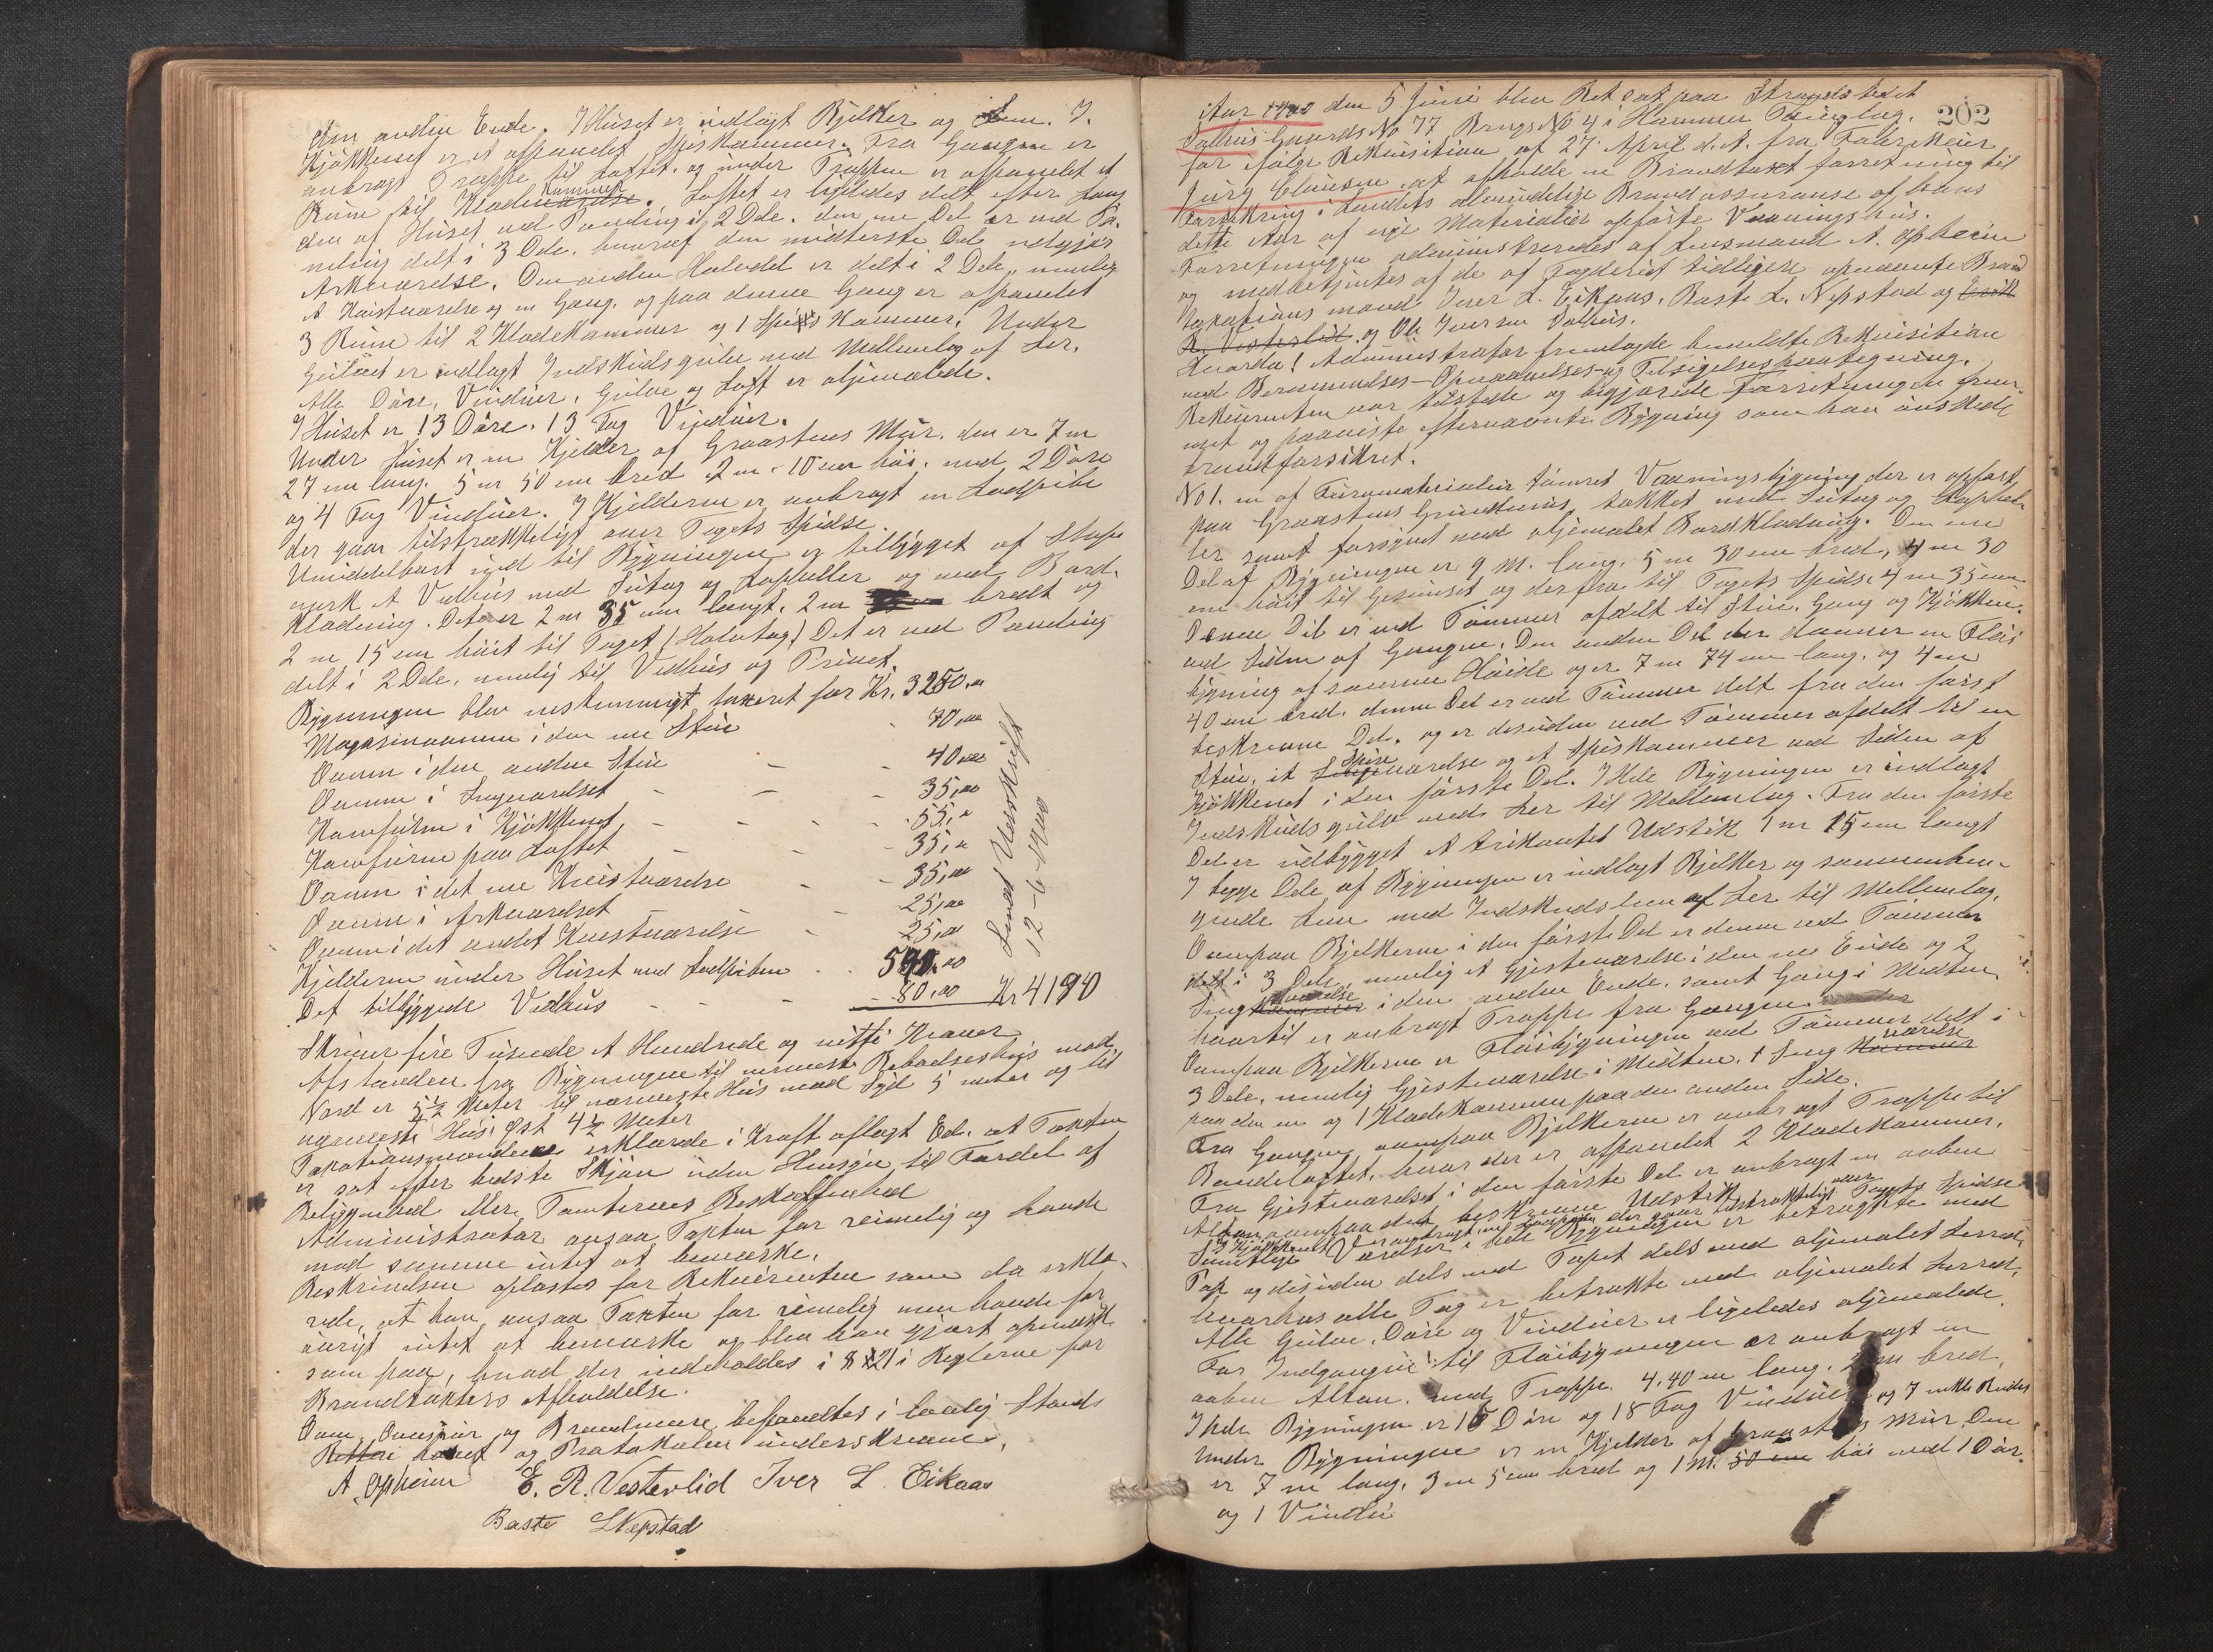 den anden Ende. I Huset er indlagt Bjelker og Lem. I
Kjøkkenet er et afpanelet Spiskammer. Fra Gangen er
anbragt Trappe til Loftet, og under Trappen er afpanelet et
Rum til Klædekammer. Loftet er ligeledes delt efter Læng
den af Huset ved Paneling i 2 Dele. den ene Del er ved Pa-
neling delt i 3 Dele, hvoraf den midterste Del udgjør
Arkværelse. Den anden Halvdel er delt i 2 Dele, nemlig
et Kvistværelse og en Gang, og paa denne Gang er afpanelet
3 Rum til 2 Klædekammer og 1 Spiskammer. Under
Gulvet er indlagt Indskudsgulv med Mellemlag af Ler.
Alle Døre, Vinduer, Gulve og Loft er oljemalede.
I Huset er 13 Døre. 13 Fag Vinduer.
Under Huset er en Kjelder af Graastens Mur, den er 7 m
27 cm lang. 5 m 50 cm bred 2 m 10 cm høi, med 2 Døre
og 4 Fag Vinduer. I Kjelderen er anbragt en Lodpibe
der gaar tilstrækkeligt over Tagets Spidse.
Umiddelbart ind til Bygningen er tilbygget af Stape
verk et Vedhus med Sutag og Lapheller og med Bord-
klædning. Det er 2 m 35 cm langt, 2 m bredt og
2 m 15 cm høit til Taget (Halvtag) Det er ved Paneling
delt i 2 Dele, nemlig til Vedhus og Privet.
Bygningen blev enstemmigt taxeret for Kr. 3250,00
Magasinovnen i den ene Stue - 70,00
Ovnen i den anden Stue - - 40,00
Ovnen i Sengeværelset - - - 35,00
Komfuren i Kjøkkenet - - - - 55,00
Komfuren paa Loftet - - - 35,00
Ovnen i det ene Kvistværelse - - 35,00
Ovnen i Arkværelset - - 25,00
Ovnen i det andet Kvistværelse - 25,00
Kjelderen under Huset med Lodpiben - - 540,00
Det tilbyggede Vedhus - - - - 80,00 Kr 4190
Sendt Udskrift
12-6-1900
Skriver fire Tusinde et Hundrede og nitti Kroner
Afstanden fra Bygningen til nermeste Beboelseshus mod
Nord er 5½ Meter til nærmeste Hus mod Syd 5 meter og til
nærmeste Hus Øst 4½ Meter
Taxationsmændene erklærede i Kraft aflagt Ed. at Taxten
er sat efter bedste Skjøn uden Hensyn til Fordel af
Beliggenhed eller Tomternes Beskaffenhed
Administrator ansaa Taxten for rimelig og havde
mod samme intet at bemærke.
Beskrivelsen oplæstes for Rekvirenten som da erklæ-
rede, at han ansaa Taxten for rimelig men havde for
øvrigt intet at bemærke og blev han gjort opmærk
som paa, hvad der indeholdes i § 21 i Reglerne for
Brandtaxters Afholdelse.
Ovne, Ovnsrør og Brandmure befandtes i lovlig Stand
Retten hævet og Protokolen underskreven.
A. Opheim E. R. Vesterlid Iver L. Eikaas
Baste L Nepstad
202
Aar 1900 den 5 Juni blev Ret sat paa Strandstedet
Salhus Gaards No 77 Brugs No 4 i Hammer Thinglag.
for følge Rekvisition af 27 April d. A. fra Fabrikeier
Jurg Clausen, at afholde en Brandtaxtforretning til
Forsikring i Landets almindelige Brandassuranse af hans
dette Aar af nye Materialier opførte Vaaningshus.
Forretningen administreredes af Lensmand A. Opheim
og medbetjentes af de af Fogderiet tidligere opnævnte Brand
taxations mænd Iver L. Eikaas, Baste L. Nepstad og Erik
R. Vesterlid og Ole Iversen Salhus.
Hvorda! Administrator fremlagde bemeldte Rekvisition
med Berammelses- Opnævnelses- og Tilsigelsespaategning.
Rekvirenten var tilstede og begjærede Forretningen frem-
met og paaviste efternævnte Bygning som han ønskede
brandforsikret.
No 1. en af Furumaterialier tømret Vaaningsbygning der er opført
paa Graastens Grundmur, tækket med Sutag og Laphel-
ler samt forsynet med oljemalet Bordklædning. Den ene
Del af Bygningen er 9 M. lang, 5 m 30 cm bred, 4 m 30
cm høit til Gesimset og derfra til Tagets Spidse 4 m 35 cm.
Denne Del er ved Tømmer afdelt til Stue, Gang og Kjøkken
ved Siden af Gangen. Den anden Del der danner en Fløi
bygning af samme Høide og er 7 m 74 cm lang, og 4 m
40 cm bred, denne Del er ved Tømmer delt fra den først
beskrevne Del. og er desuden ved Tømmer afdelt til en
Stue, et Spiseværelse og et Spiskammer ved Siden af
Kjøkkenet i den første Del. I Hele Bygningen er indlagt
Indskudsgulv med Ler til Mellemlag. Fra den første
Del er udbygget et trekantet Udstik 1 m 15 cm langt
I begge Dele af Bygningen er indlagt Bjelker og sammenhæn-
gende Lem med Indskudslem af Ler til Mellemlag.
Ovenpaa Bjelkerne i den første Del er denne ved Tømmer
delt i 3 Dele, nemlig et Gjesteværelse i den ene Ende og 2
Sengeværelse i den anden Ende, samt Gang i Midten
hvortil er anbragt Trappe fra Gangen
Ovenpaa Bjelkerne er Fløibygningen ved Tømmer delt i
3 Dele, nemlig Gjesteværelse i Midten. 1 Senge værelse
paa den ene og 1 Klædekammer paa den anden Side.
Fra Gangen ovenpaa Bjelkerne er anbragt Trappe til
Rundeloftet, hvor der er afpanelet 2 Klædekammer.
Fra Gjesteværelset i den første Del er anbragt en aaben
Altan ovenpaa det beskrevne Udstik
I Kjøkkenet er anbragt en Lodpibe der gaar tilstrækkeligt over Tagets Spidse
Samtlige Værelser i hele Bygningen er betrukne med
Pap og desuden dels med Tapet dels med oljemalet Lerred,
hvorhos alle Tag er betrukne med oljemalet Lerred,
Alle Gulve, Døre og Vinduer er ligeledes oljemalede
For Indgangen til Fløibygningen er anbragt en
aaben Altan, med Trappe 4,40 m lang, m bred.
I hele Bygningen er 15 Døre og 18 Fag Vinduer og 7 enkle Ruder
Under Bygningen er en Kjelder af Graastens Mur. Den
er 7 m lang, 3 m 5 cm bred og 1 M. 50 cm høi med 1 Dør.
og 1 Vindu